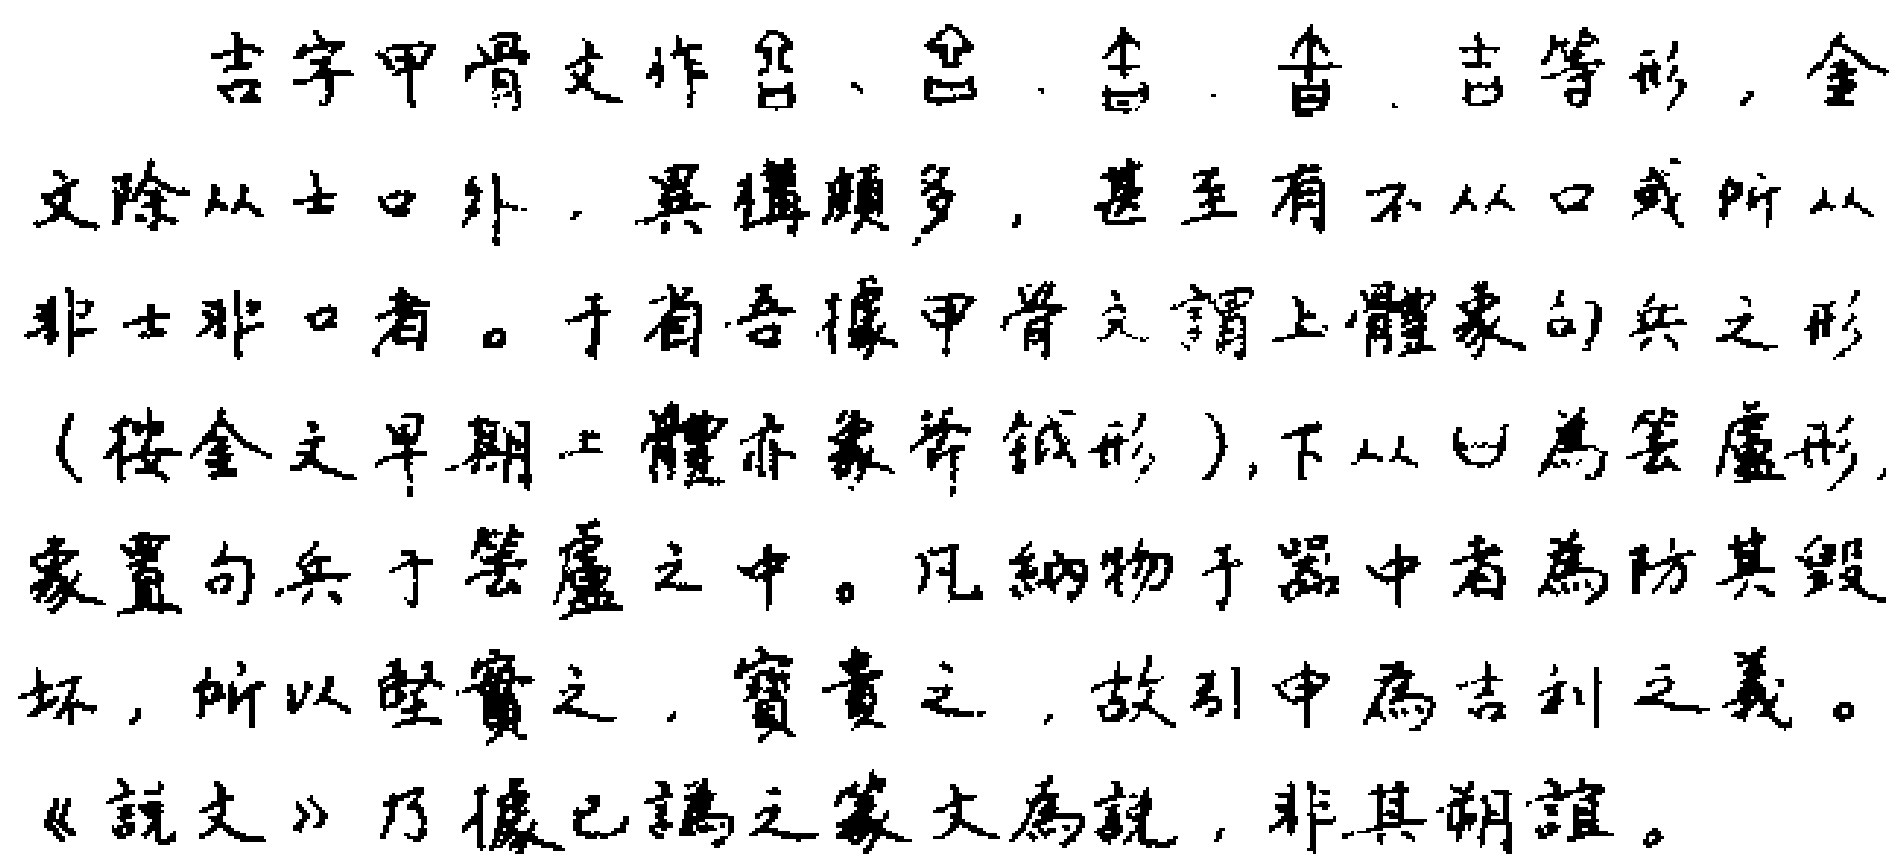 吉字甲骨文作、、、、吉等形，金
文除从士口外，異構頗多，甚至有不从口或所从
非士非口者。于省吾據甲骨文謂上體象句兵之形
（按金文早期上體亦象斧鉞形），下从凵為笭盧形，
象置句兵于笭盧之中。凡納物于器中者為防其毀
坏，所以堅實之，寶貴之，故引申為吉利之義。
《説文》乃據已譌之篆文為説，非其朔誼。